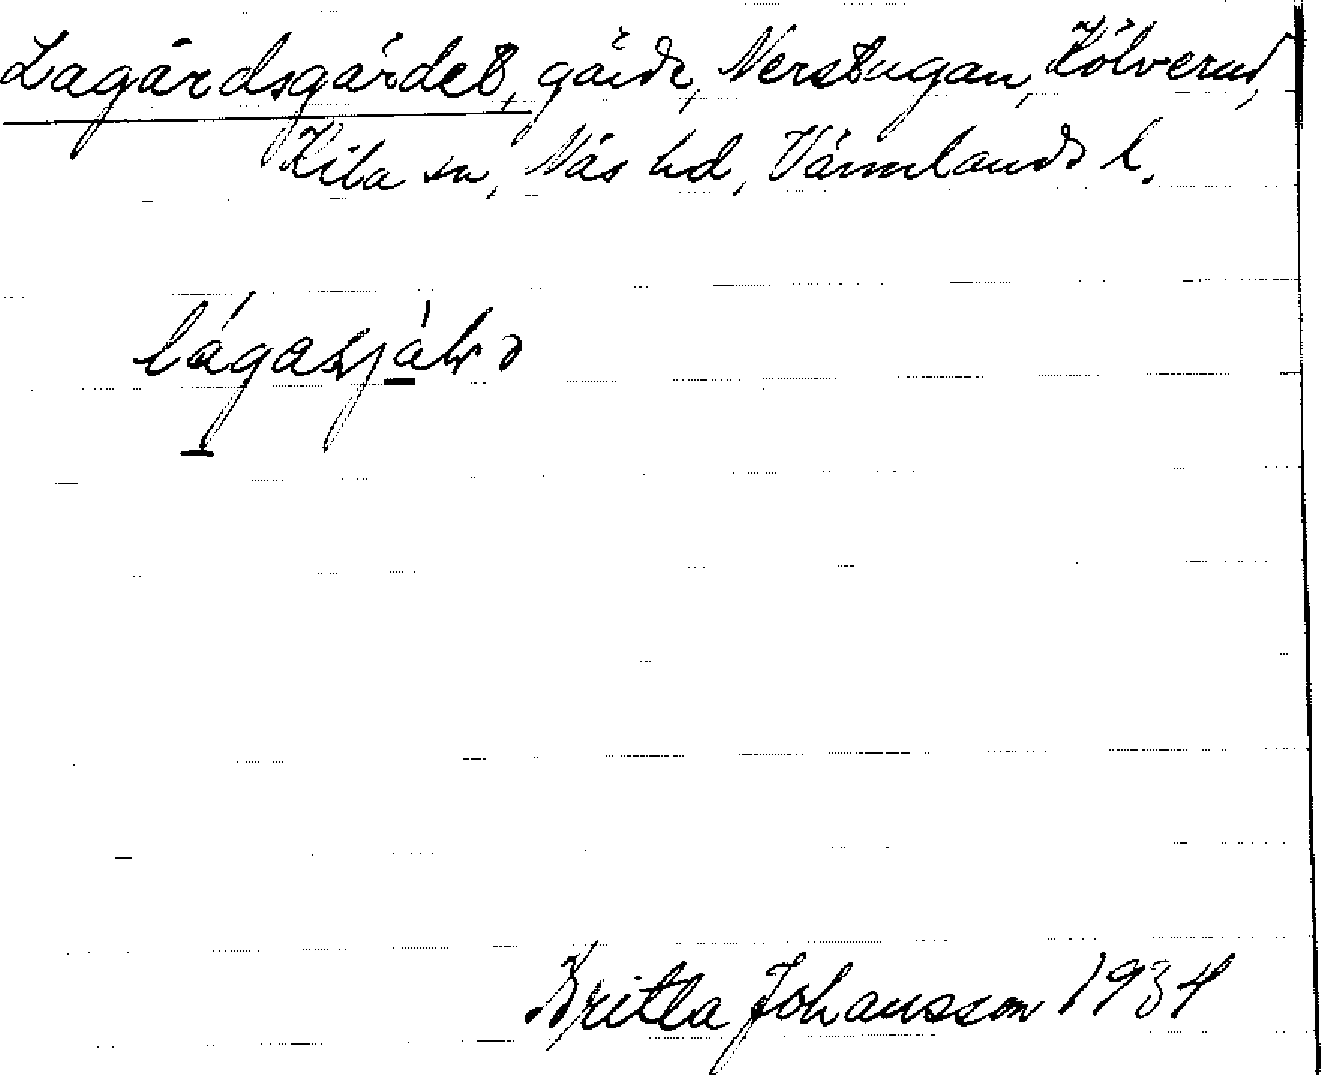 Lagårdsgärdet, gärde, Nerstugan, Kölverud,
Kila sn, Näs hd, Värmlands l.
Britta Johansson 1934